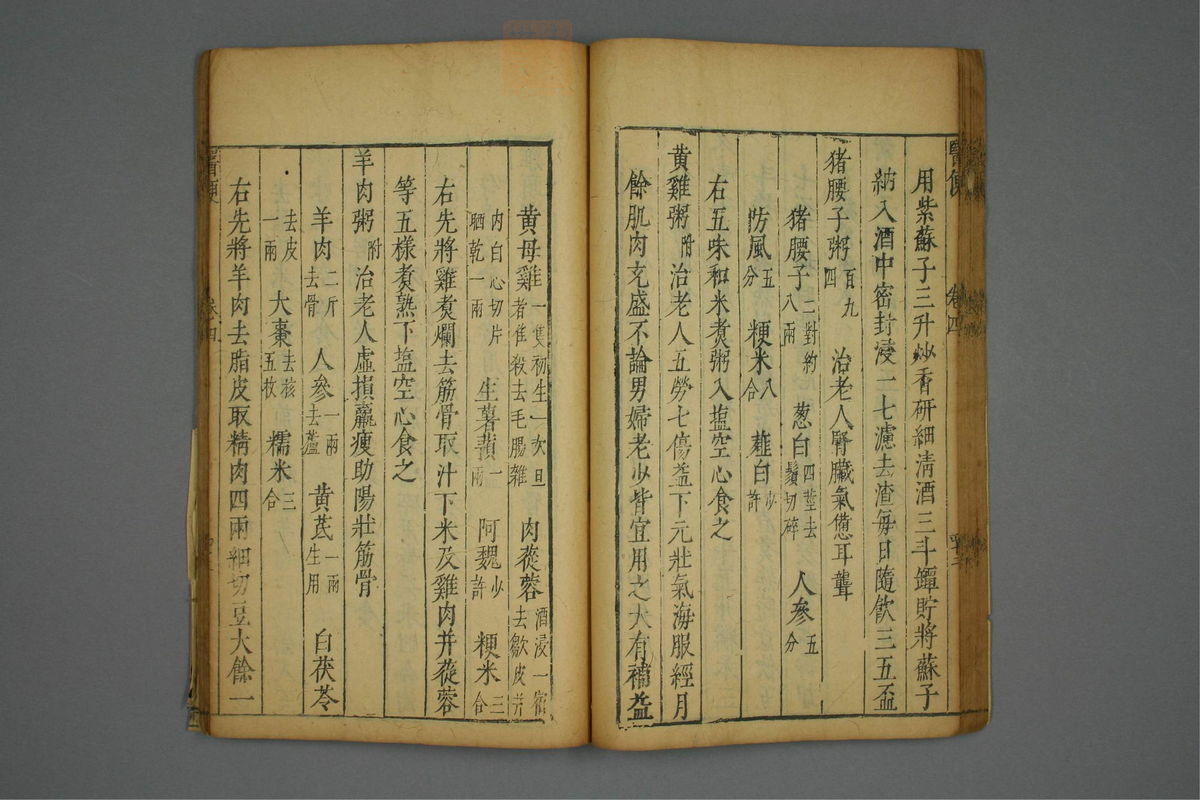 醫便 卷四
用紫蘇子三升炒香研細清酒三斗罈貯將蘇子
納入酒中密封浸一七濾去渣每日隨飲三五盃
猪腰子粥百九四 治老人腎臟氣憊耳聾
猪腰子二對約八兩 葱白四莖去鬚切碎 人參五分
防風五分 粳米八合 薤白少許
右五味和米煮粥入塩空心食之
黄雞粥附 治老人五勞七傷益下元壯氣海服經月
餘肌肉充盛不論男婦老少皆宜用之大有補益
黄母雞一隻初生一次旦者隹殺去毛腸雜 肉蓯蓉酒浸一宿去皺皮并
内白心切片晒乾一兩 生薯蕷一兩 阿魏少許 粳米三合
右先將雞煮爛去筋骨取汁下米及雞肉并蓯蓉
等五様煮熟下塩空心食之
羊肉粥附 治老人虛損羸瘦助陽壯筋骨
羊肉二斤去骨 人參一兩去蘆 黄芪一兩生用 白茯苓
去皮一兩 大棗去核五枚 糯米三合
右先將羊肉去脂皮取精肉四兩細切豆大餘一
醫便 卷四